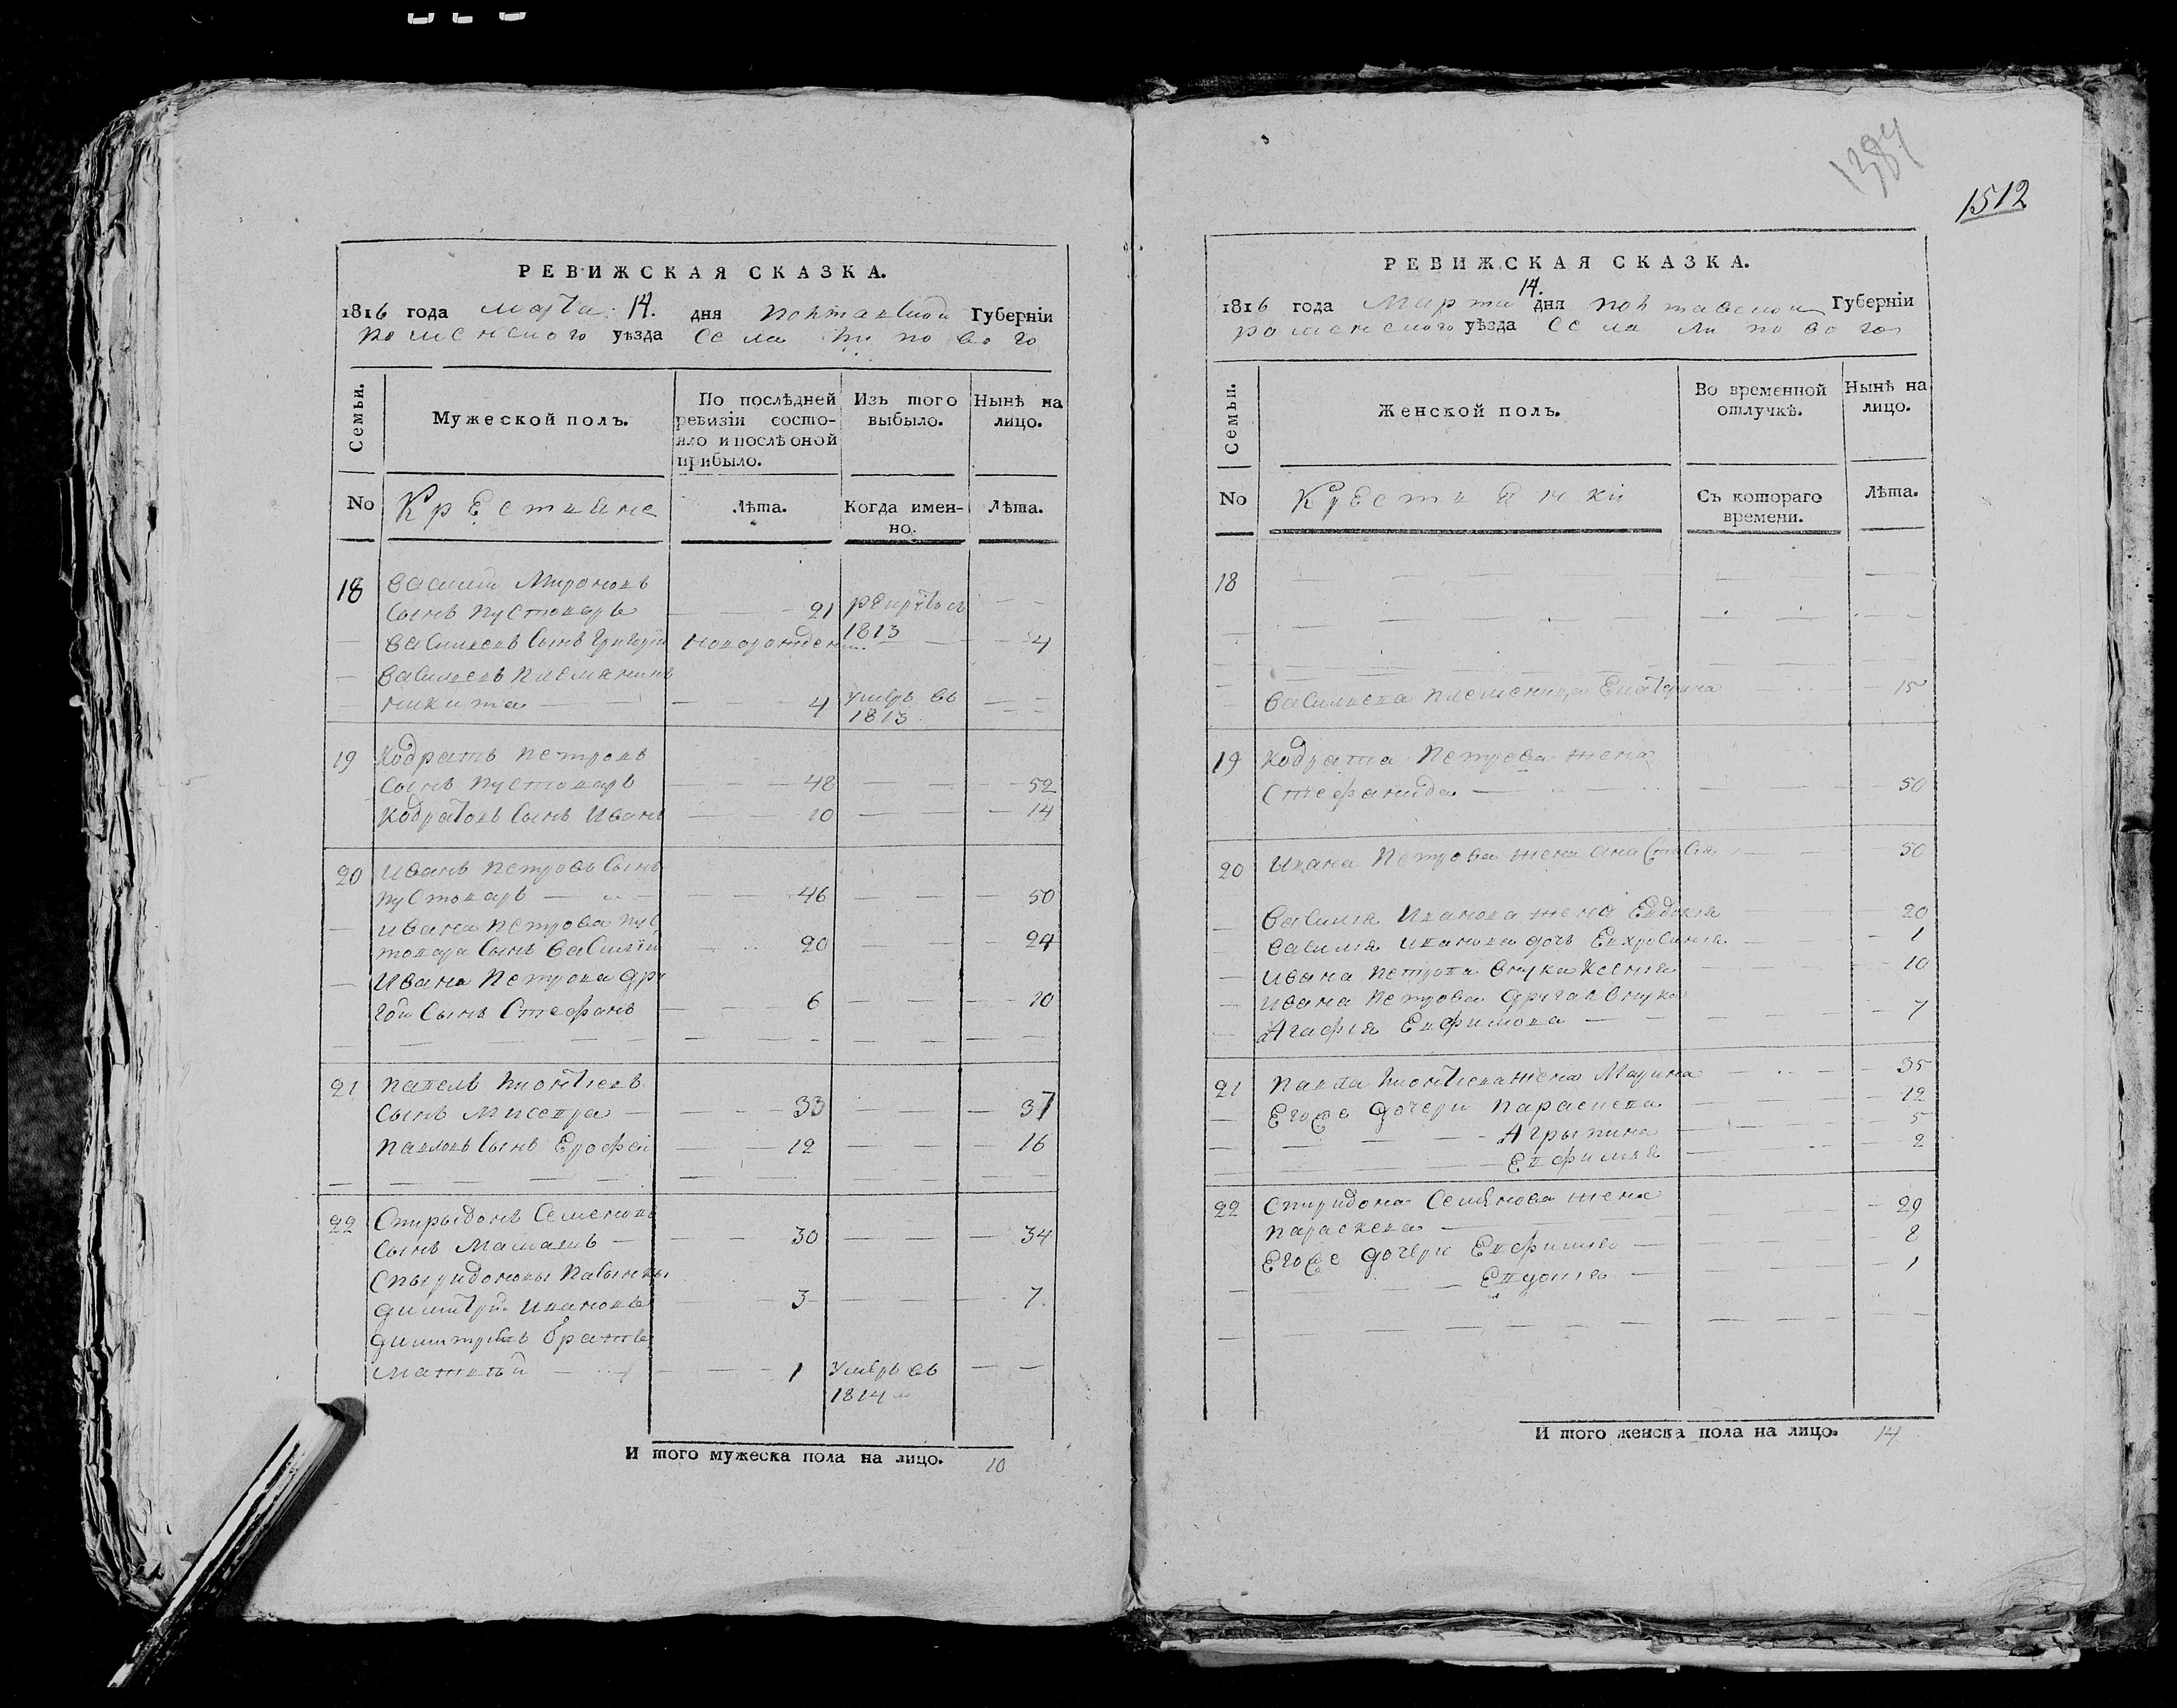 РЕВИЖСКАЯ СКАЗКА.
1816 года марта 14. дня полтавской Губерніи
роменского уѣзда села липового
Семьи.
Мужеской полъ.
По послѣдней ревизіи состояло и послѣ оной прибыло.
Изъ того выбыло.
Нынѣ на лицо.
No
Крестьяне
Лѣта.
Когда именно.
Лѣта.
18 василий Мироновъ
сынъ пустоваръ 21 рекрутъ
васильевъ сынъ григорій новорожден 1813 4
васильевъ племянникъ
никита 4 умеръ въ
1813
19 кодратъ петровъ
сынъ пустоваръ 48 52
кодратовъ сынъ иванъ 10 14
20 иванъ петровъ сынъ
пустоваръ 46 50
ивана петрова пус
товара сынъ василій 20 24
ивана петрова дру
гой сынъ стефанъ 6 10
21 павелъ
сынъ мисевра 33 37
павловъ сынъ ерофей 12 16
22 спирыдонъ семеновъ
сынъ 30 34
спырыдоновы пасынки
димитрий ивановъ 3 7.
димитриевъ братъ
матвѣй 1 умеръ въ
1814
И того мужеска пола на лицо. 10
1387
1512
РЕВИЖСКАЯ СКАЗКА.
14.
1816 года марта дня полтавской Губерніи
роменского уѣзда села липового
Семьи.
Женской полъ.
Во временной отлучкѣ.
Нынѣ на лицо.
No
Крестьянки
Съ котораго времени.
Лѣта.
18
васильева племеница екатерина 15
19 кодрата петрова жена
стефанида 50
20 ивана петрова жена анастасія 50
василия иванова жена евдокія 20
василия иванова дочь евхросинія 1
ивана петрова внука ксенія 10
ивана петрова другая внука
агафія евфимова 7
21 павла жена марина 35
его же дочери параскева 12
агрыпина 5
евфимія 2
22 спиридона семенова жена
параскева 29
его же дочери евфимія 8
евдокія 1
И того женска пола на лицо. 14